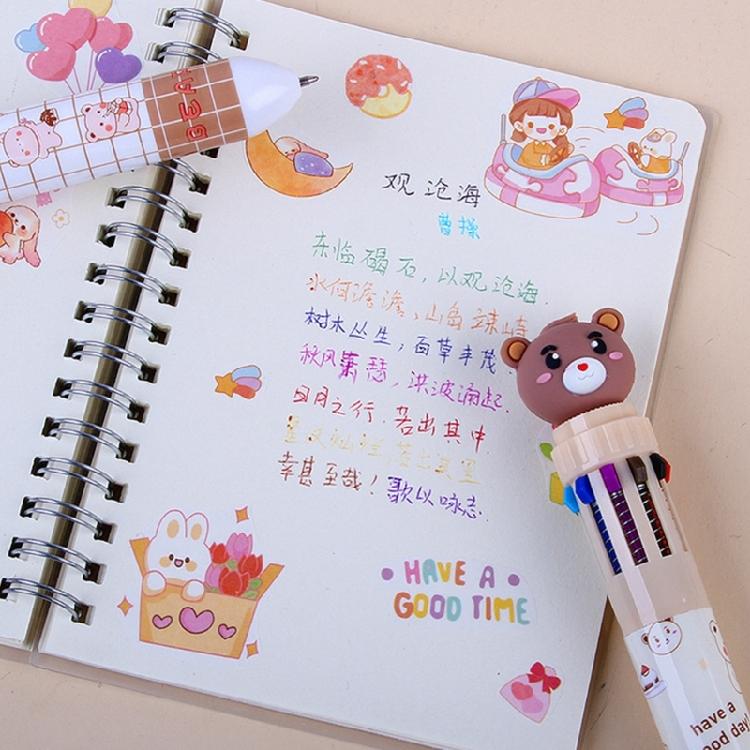 观沧海
曹操
东临碣石，以观沧海.
水何澹澹，山岛竦峙
树木丛生，百草丰茂
秋风萧瑟，洪波涌起.
日月之行，若出其中.
星汉灿烂，若出其里
幸甚至哉！歌以咏志.
HAVE A
GOOD TIME
have a
ood day!